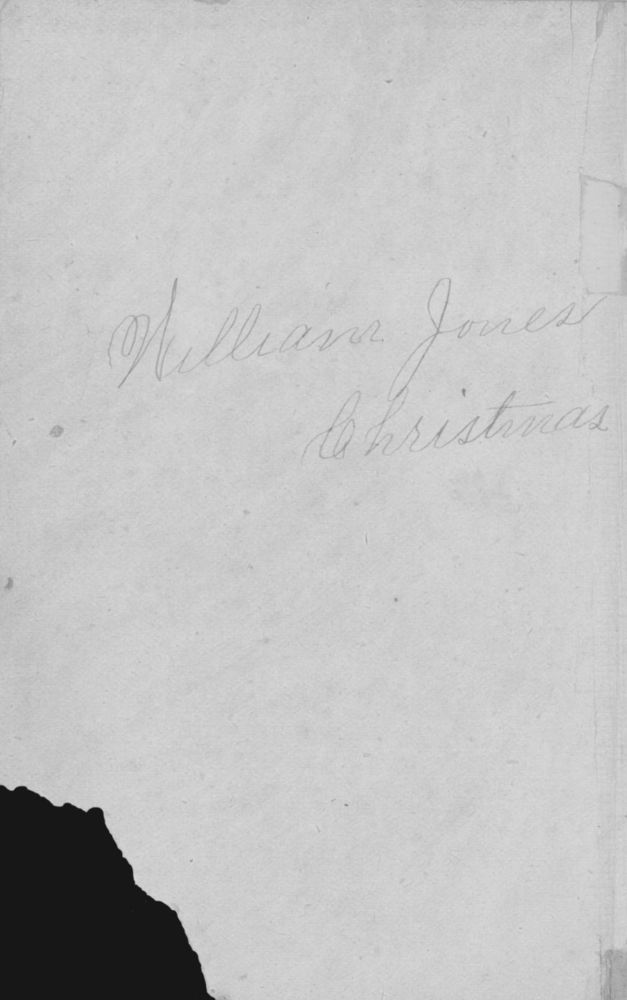 William Jones
Christmas